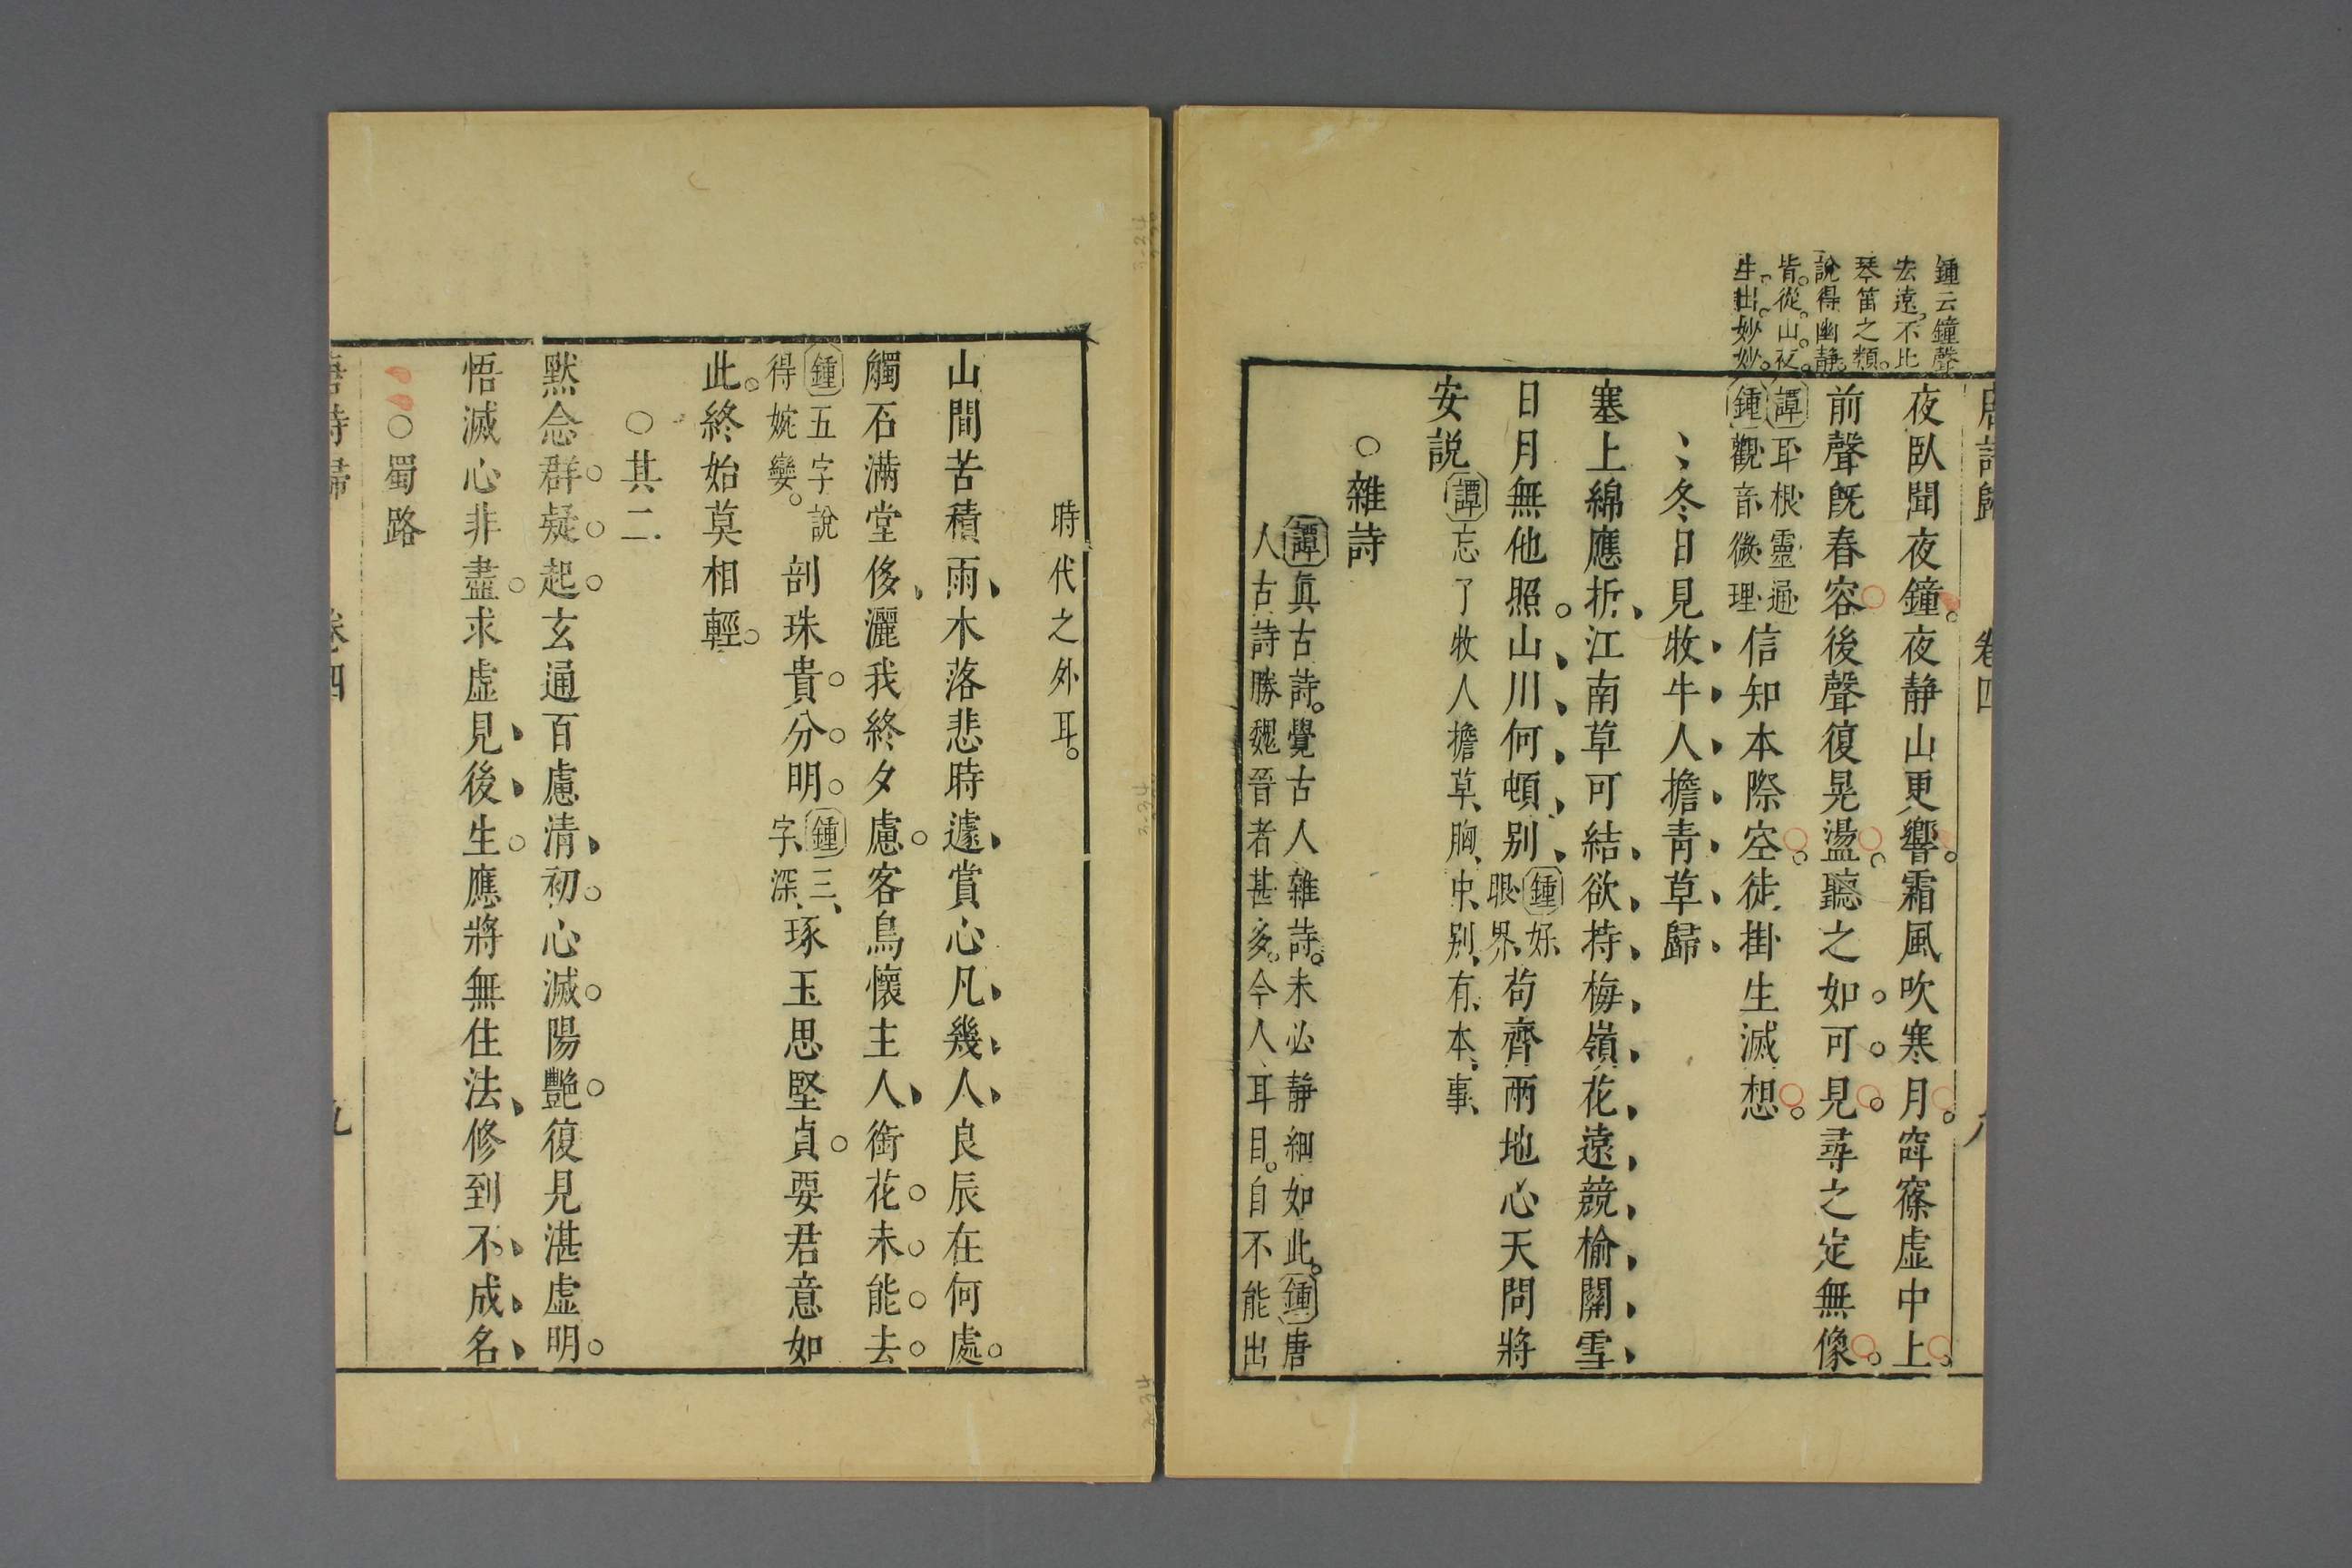 唐詩歸
卷四
鍾云鐘聲
去遠不比
琴笛之類
說得幽静
皆從山夜
生出妙妙
夜臥聞夜鐘夜静山更響霜風吹寒月窅窱虛中上
前聲旣舂容後聲復晃盪聽之如可見尋之定無像
譚耳根靈通
鍾觀音微理
信知本際空徒掛生滅想
冬日見牧牛人擔靑草歸
塞上綿應折江南草可結欲持梅嶺花遠競榆關雪
日月無他照山川何頓别
鍾好
眼界
苟齊兩地心天問將
安説
譚忘了牧人擔草胸中别有本事
○雜詩
譚眞古詩覺古人雜詩未必静細如此鍾唐
人古詩勝魏晋者甚多今人耳目自不能出
時代之外耳
山間苦積雨木落悲時遽賞心凡幾人良辰在何處
觸石滿堂侈灑我終夕慮客鳥懷主人銜花未能去
鍾五字說
得婉孌
剖珠貴分明
鍾三
字深
琢玉思堅貞要君意如
此終始莫相輕
○其二
黙念群疑起玄通百慮清初心滅陽艷復見湛虛明
悟滅心非盡求虛見後生應將無住法修到不成名
○蜀路
唐詩歸
卷四
九